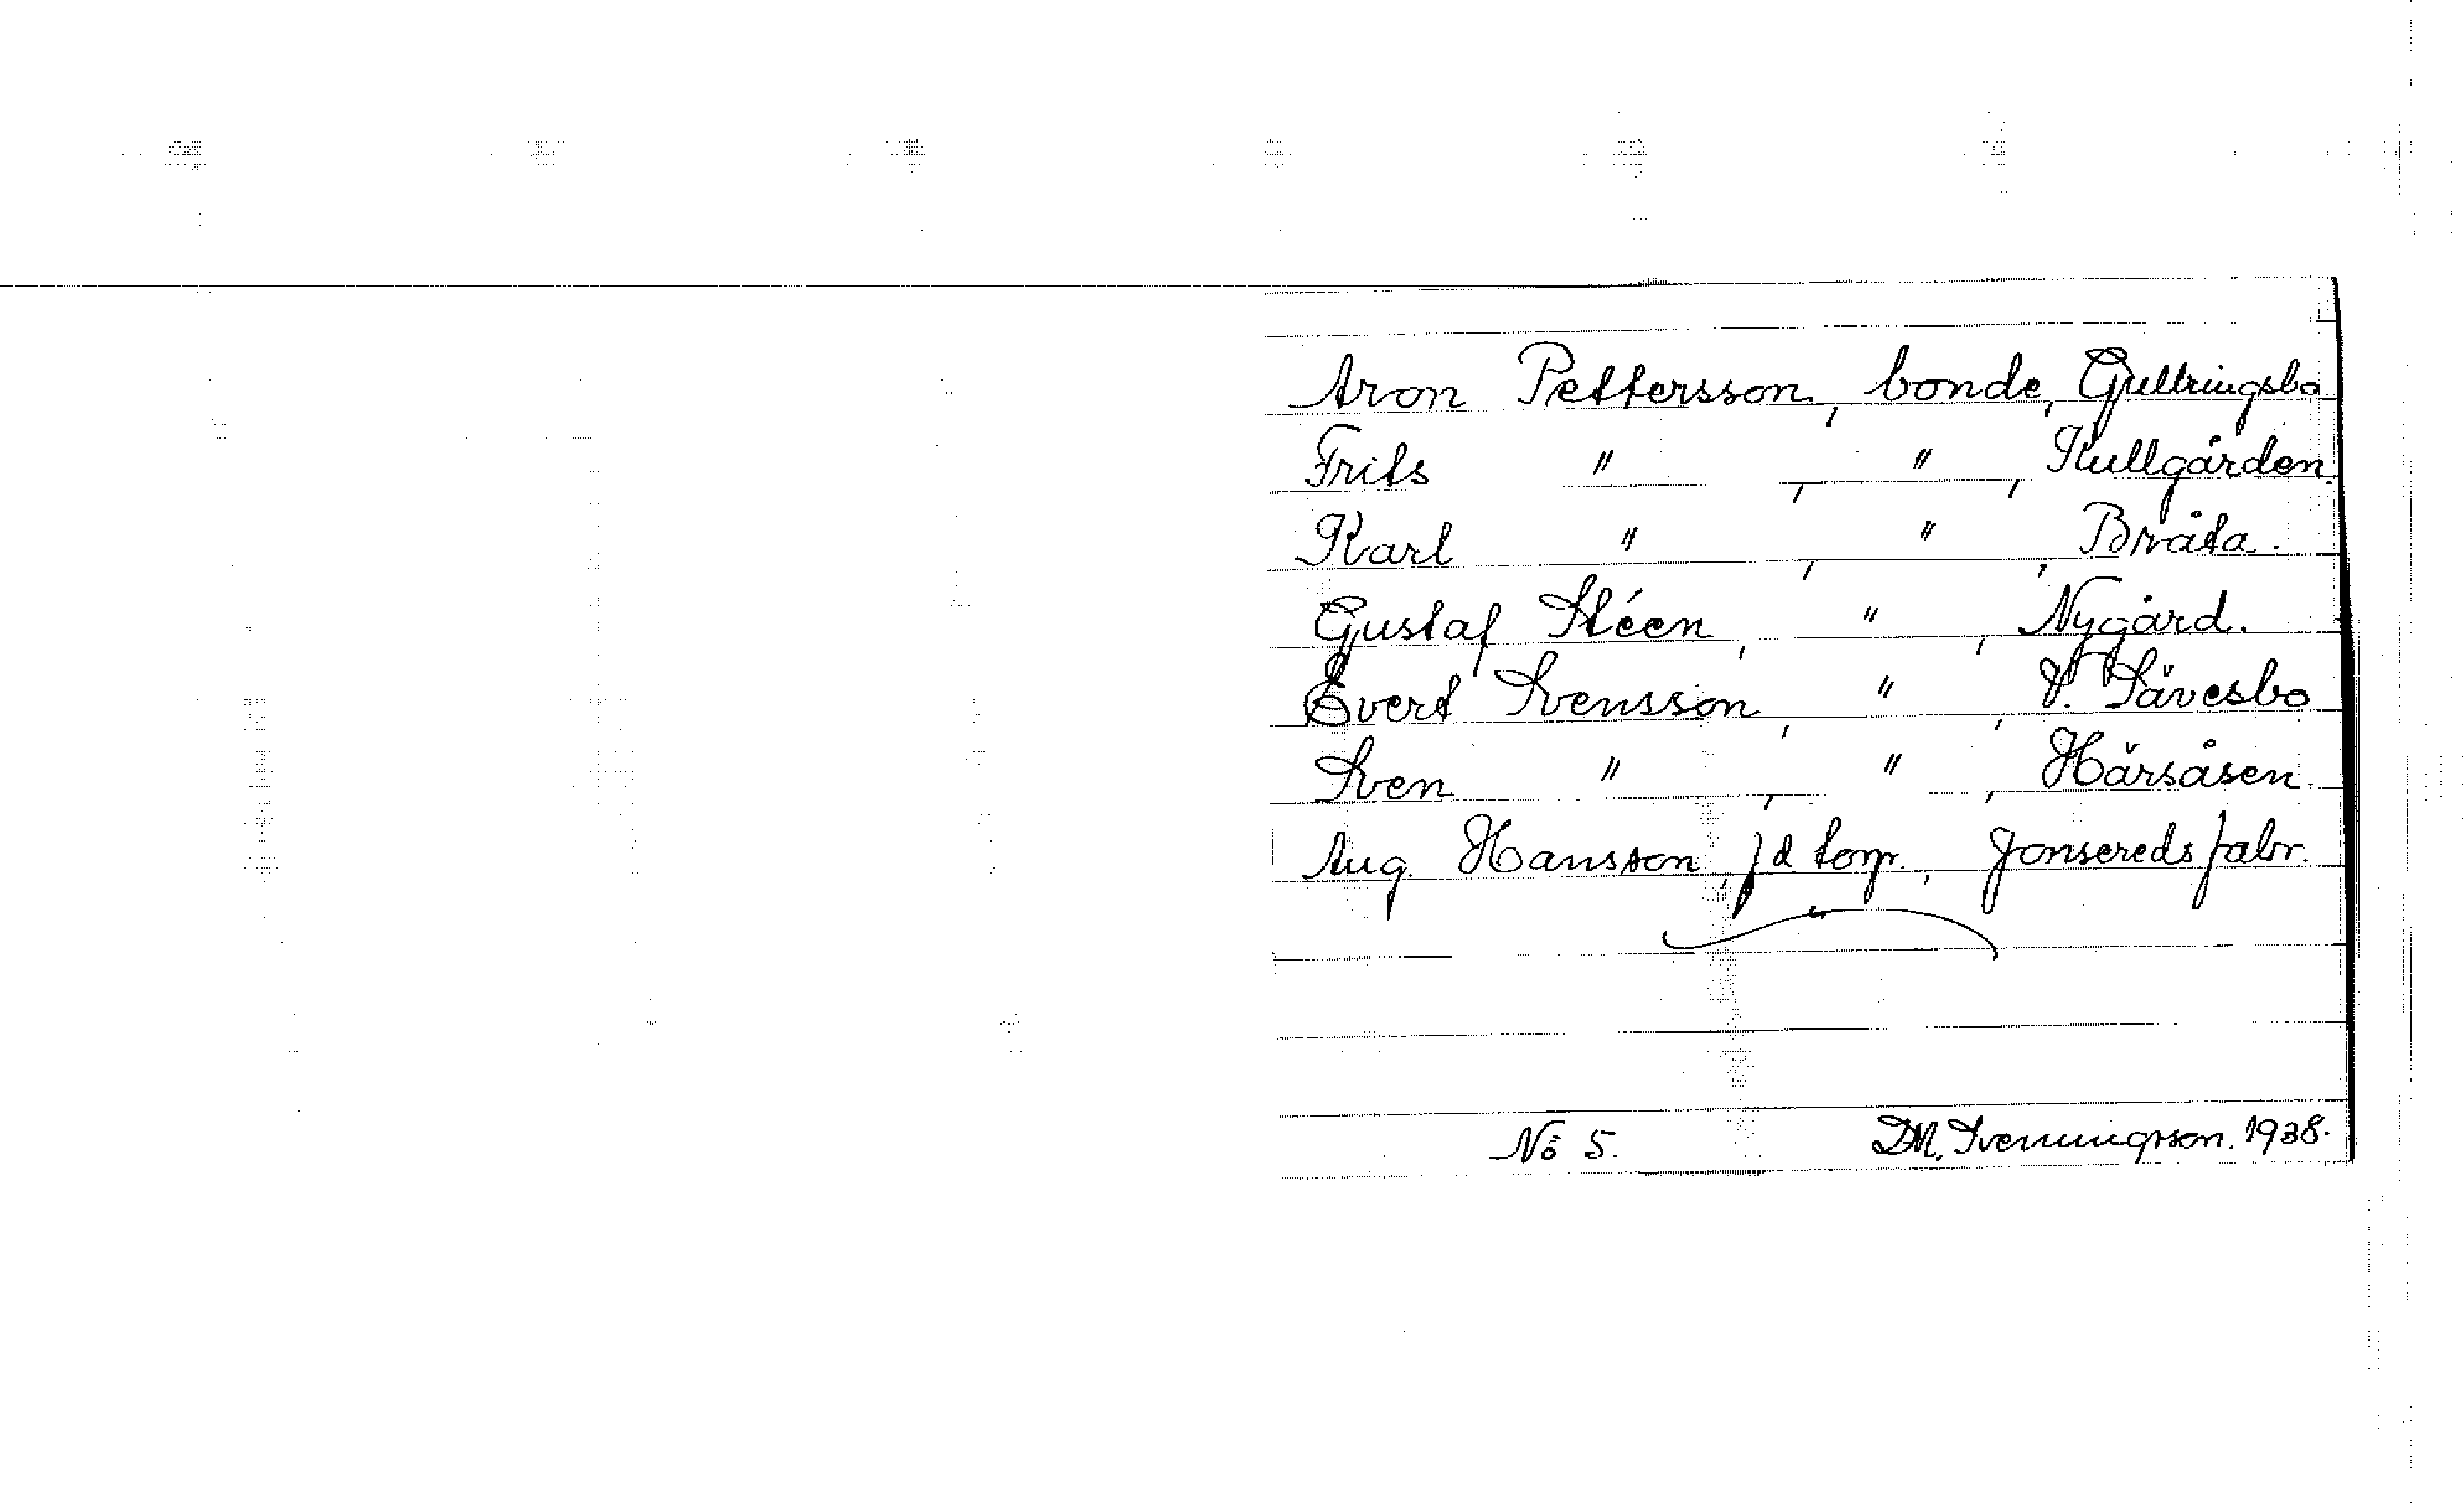 Aron Pettersson, bonde, Gullringsbo.
Frits " , " , Kullgården.
Karl " , " , Bråta.
Gustaf Stéen, " , Nygård.
Evert Svensson, " , V. Sävesbo
Sven " , " , Härsåsen.
Aug. Hansson, f d torp., Jonsereds fabr.
No 5. D.M. Svenningsson. 1938.